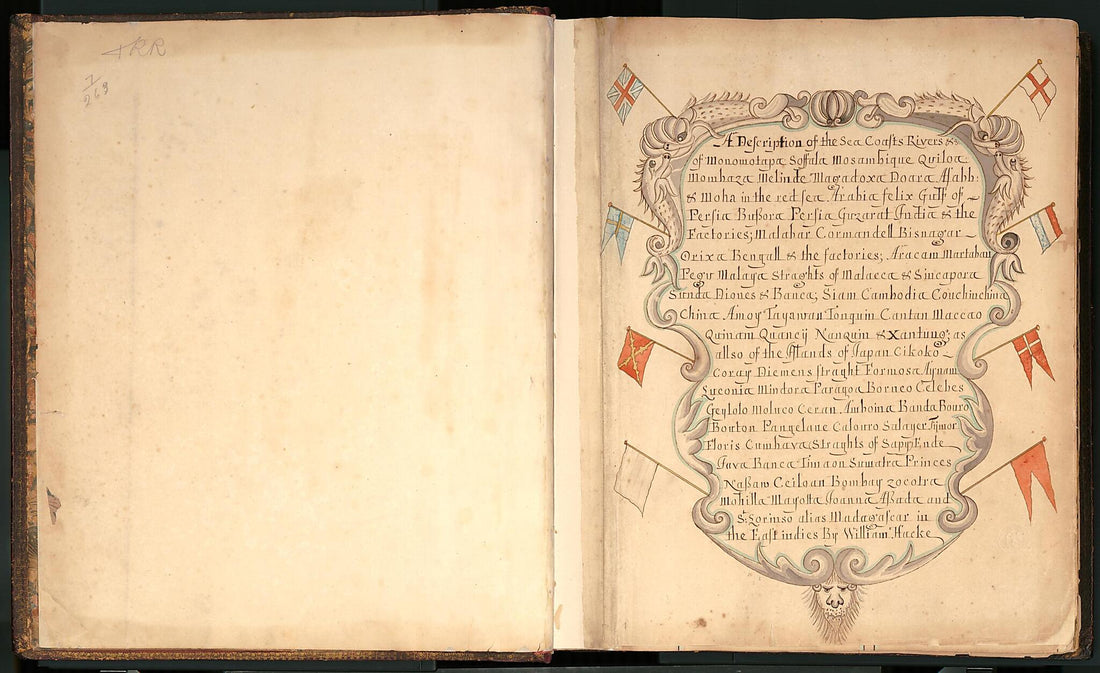 RR
1
263
A Description of the Sea Coasts Rivers &c
of Monomotapa Soffala Mosambique Quiloa
Mombaza Melinde Magadoxa Doara Assabb:
& Moha in the red sea. Arabia felix Gulf of
Persia Bußora Persia Guzarat India & the
Factories; Malabar Cormandell Bisnagar
Orixa Bengall & the factories; Aracam Martaban
Pegu Malaya Straghts of Malacca & Sincapora
Sunda Diones & Banca; Siam Cambodia Couchinchina
China Amoy Tayawan Tonquin Cantan Maccao
Quinam Quancij Nanquin & Xantung; as
allso of the Islands of Japan Cikoko
Coray Diemens straght Formosa Aynam
Luconia Mindora Paragoa Borneo Celebes
Geyloło Moluco Ceran Amboina Banda Bouro
Bouton Pangelane Calouro Salayer Tijmor
Floris Cumbava Straghts of Sapy Ende
Java Banca Timaon Sumatra Princes
Naßaw Ceiloan Bombay zocotra
Mohilla Mayotta Joanna Aßada and
St Lorinso alias Madagascar in
the East indies By William Hacke